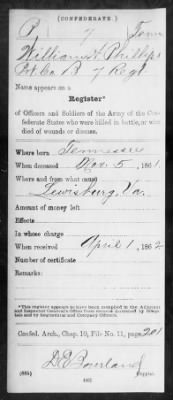 (CONFEDERATE.)
P 7 Tenn
William H Phillips
Pvt Co. B 7 Regt
Name appears on a
Register*
of Officers and Soldiers of the Army of the Con-
federate States who were killed in battle, or who
died of wounds or disease.
Where born Tennessee
When deceased Nov. 5, 1861
Where and from what cause
Lewisburg, Va.
Amount of money left
Effects
In whose charge
When received April 1, 1862
Number of certificate
Remarks:
*This register appears to have been compiled in the Adjutant
and Inspector General's Office from
and by Regimental and Company Officers.
Confed. Arch., Chap. 10, File No. 11, page 201
Bourland
Copyist.